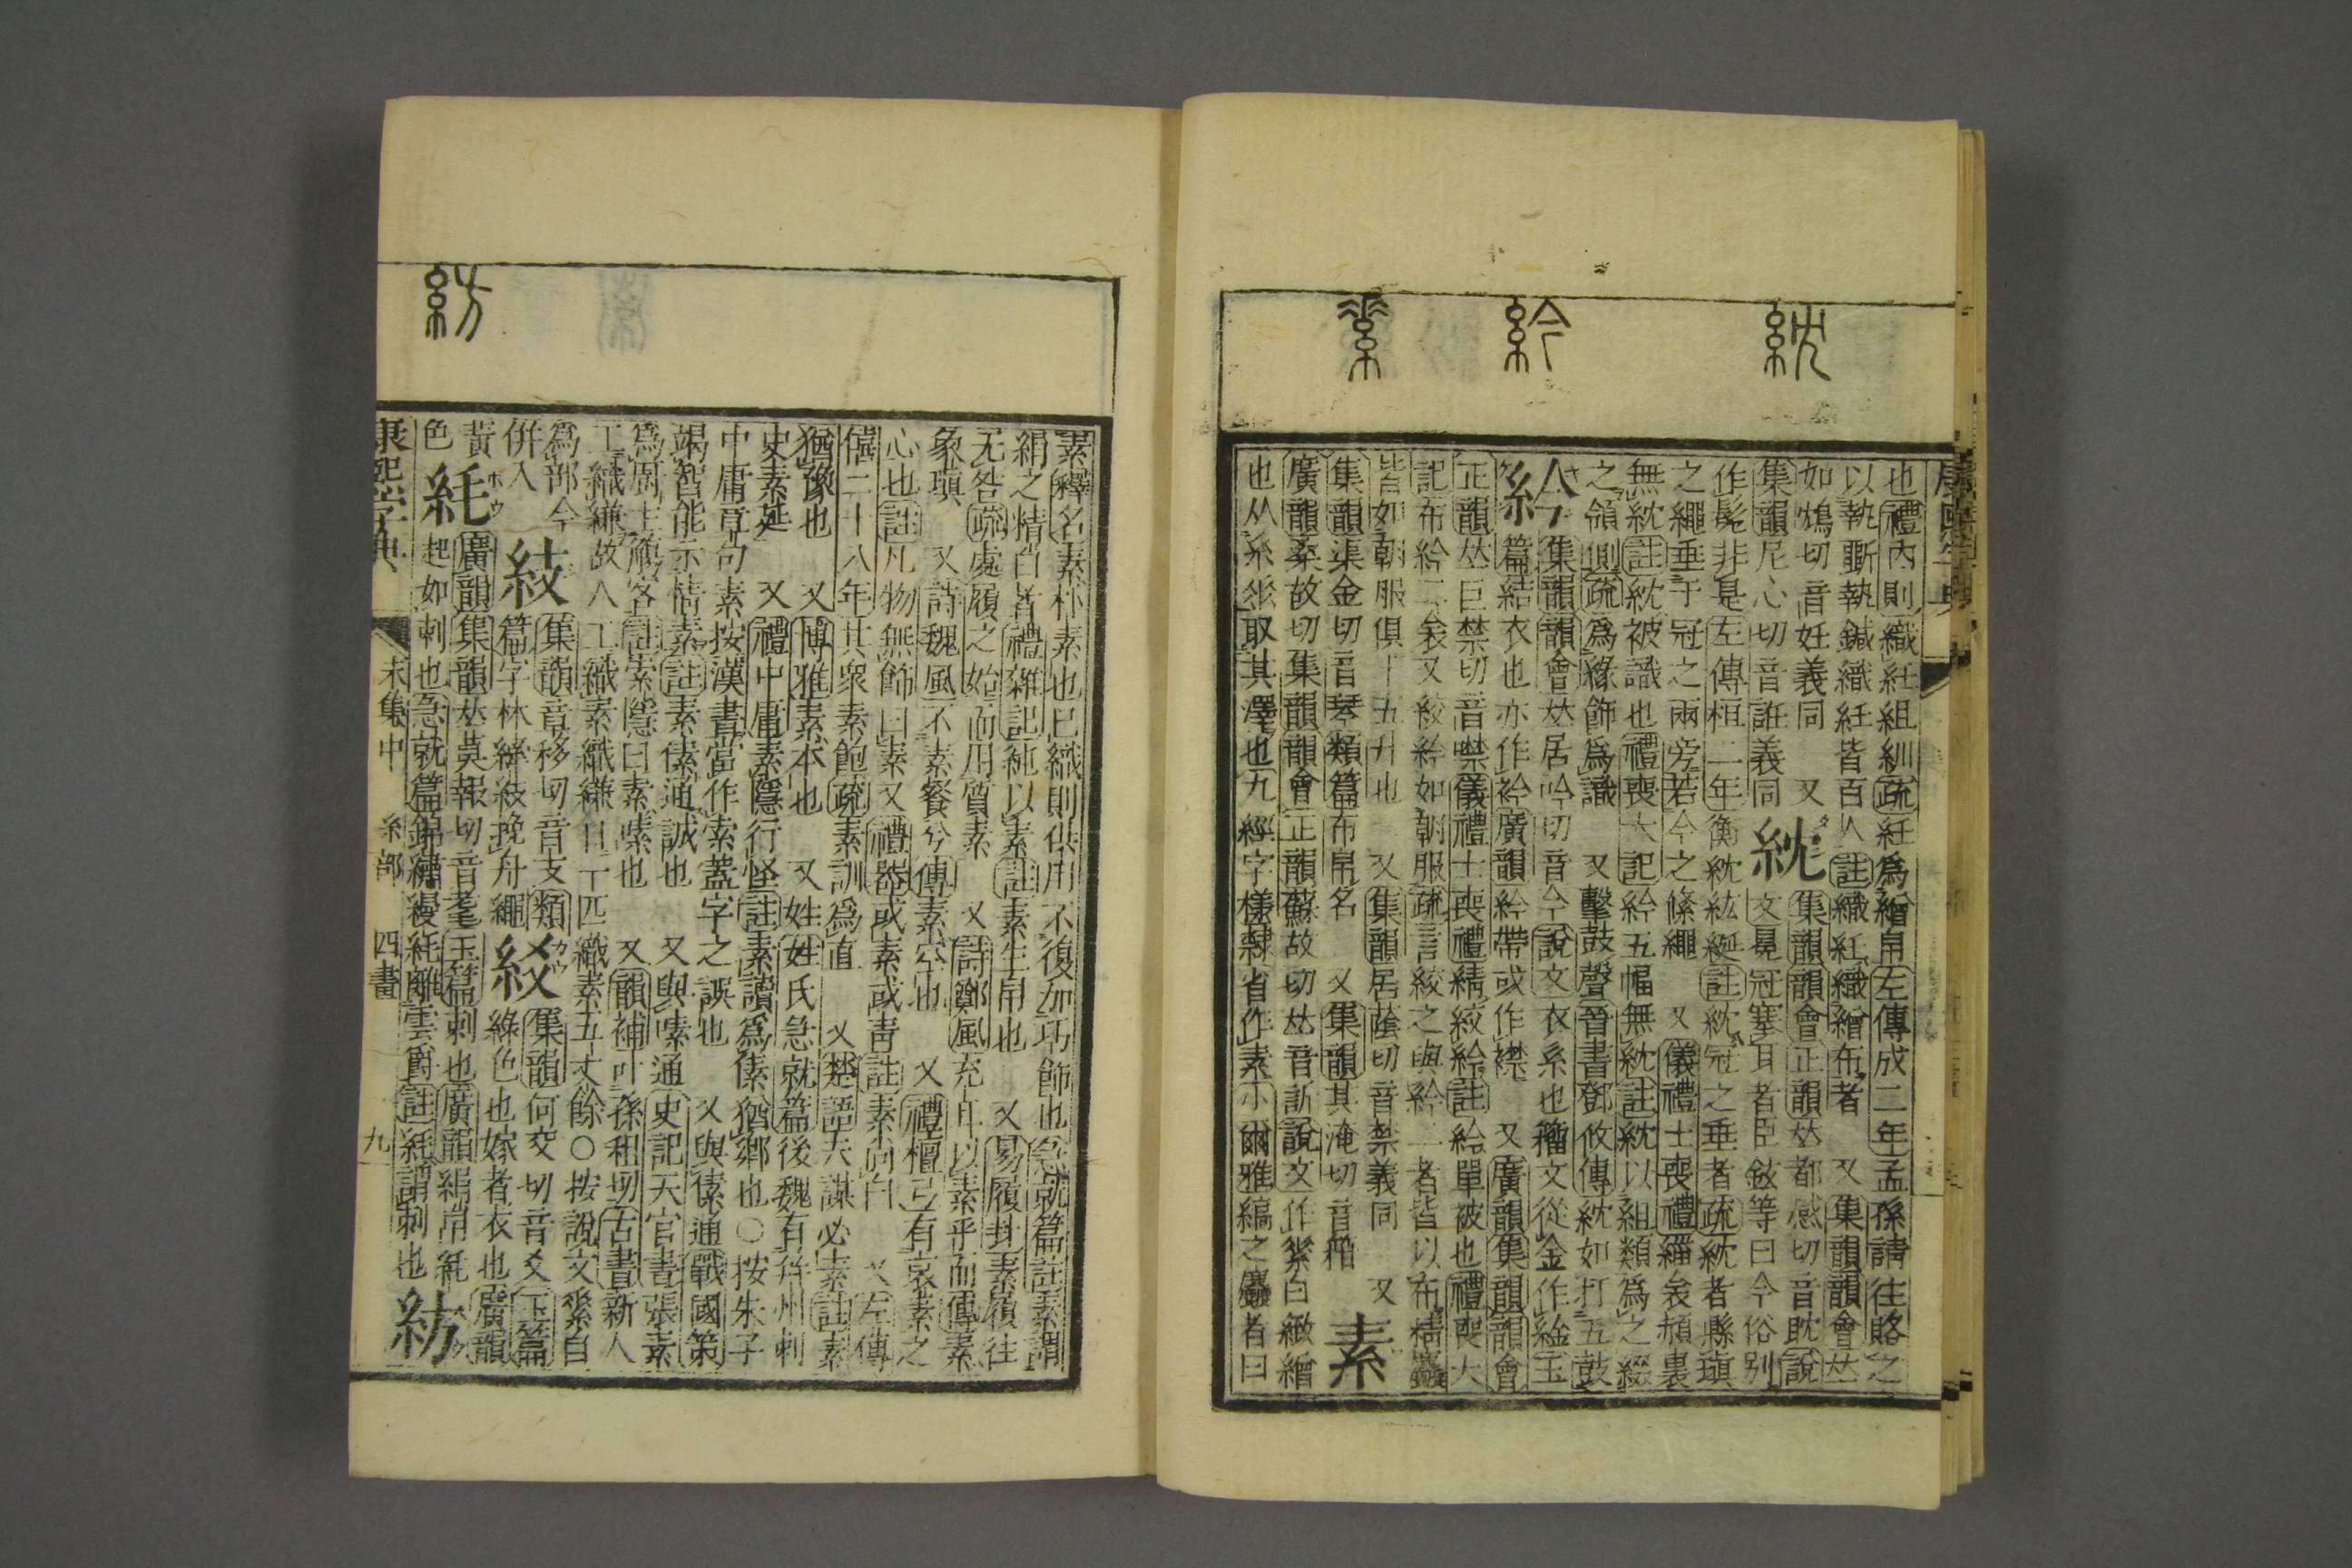 紞
紟
素
康熙字典
也禮內則織紝組紃疏紝爲繒帛左傳成二年孟孫請往賂之
以執斲執鍼織紝皆百人註織紅織繒布者　又集韻韻會𠀤
如鴆切音妊義同　又
集韻尼心切音誑義同
紞
集韻韻會正韻𠀤都感切音耽說
文冕冠塞耳者臣鉉等曰今俗别
作髧非是左傳桓二年衡紞紘綖註紞冠之垂者疏紞者縣瑱
之繩垂于冠之兩旁若今之絛繩　又儀禮士喪禮緇衾赬裏
無紞註紞被識也禮喪大記紟五幅無紞註紞以組類爲之綴
之領側疏爲緣飾爲識　又擊鼓聲晉書鄧攸傳紞如打五鼓
紟
集韻韻會𠀤居吟切音今說文衣系也籀文從金作縊玉
篇結衣也亦作衿廣韻紟帶或作襟　又廣韻集韻韻會
正韻𠀤巨禁切音噤儀禮士喪禮綪絞紟註紟單被也禮喪大
記布紟二衾又絞紟如朝服疏言絞之與紟二者皆以布精麤
皆如朝服俱十五升也　又集韻居蔭切音禁義同　又
集韻渠金切音琴類篇布帛名　又集韻其淹切音箝
素
廣韻桑故切集韻韻會正韻蘇故切𠀤音訴說文作𦃃白緻繒
也从糸𠂹取其澤也九經字樣隸省作素小爾雅縞之麤者曰
紡
素釋名素朴素也已織則供用不復加巧飾也急就篇註素謂
絹之精白者禮雜記純以素註素生帛也　又易履卦素履往
无咎疏處履之始而用質素　又詩鄭風充耳以素乎而傳素
象瑱　又詩魏風不素餐兮傳素空也　又禮檀弓有哀素之
心也註凡物無飾曰素又禮器或素或靑註素尚白　又左傳
僖二十八年其衆素飽疏素訓爲直　又楚語夫謀必素註素
猶豫也　又博雅素本也　又姓姓氏急就篇後魏有幷州刺
史素延　又禮中庸素隱行怪註素讀爲傃猶鄕也○按朱子
中庸章句素按漢書當作索蓋字之誤也　又與傃通戰國策
竭智能示情素註素傃通誠也　又與嗉通史記天官書張素
爲廚主觴客註索隱曰素嗉也　又韻補叶孫租切古書新人
工織縑故人工織素織縑日一匹織素五丈餘○按說文𦃃自
爲部今
併入
𥿆
集韻章移切音支類
篇字林綼𥿆挽舟繩
絞
集韻何交切音爻玉篇
綠色也嫁者衣也廣韻
黃
色
紝
廣韻集韻𠀤莫報切音耄玉篇刺也廣韻絹帛紝
起如刺也急就篇錦繡縵紝離雲爵註紝謂刺也
紡
康熙字典　未集中　糸部　四畫　九